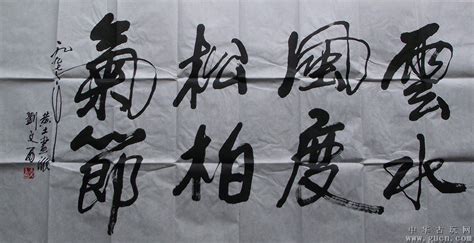 雲水
風度
松柏
氣節
中华古玩网
www.gucn.com